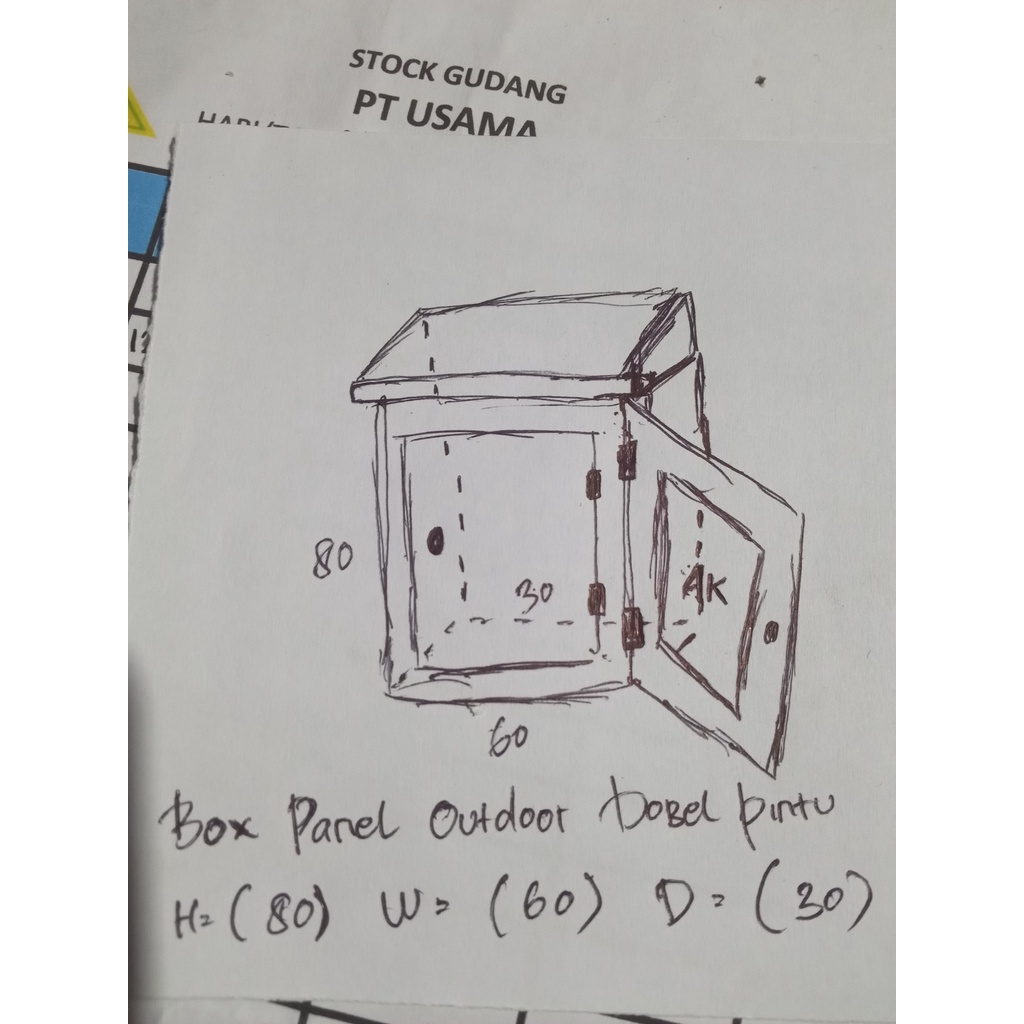 STOCK GUDANG
PT USAMA
12
80
30
AK
60
Box Panel Outdoor Dobel Pintu
H= (80) W= (60) D= (30)